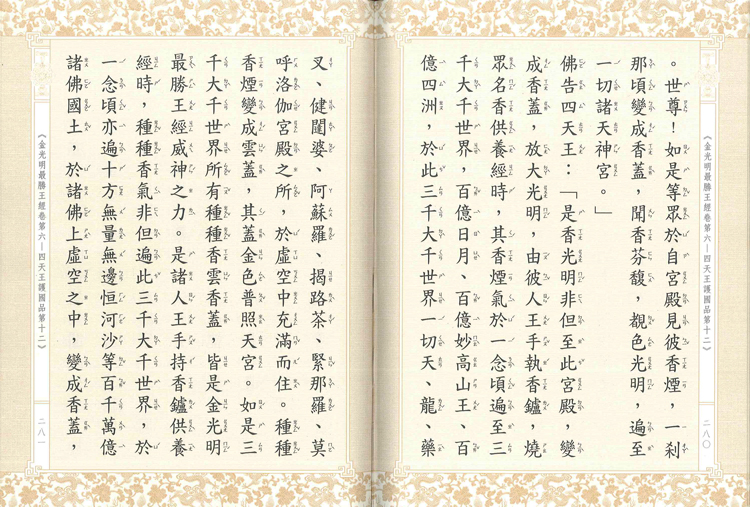 《金光明最勝王經卷第六－四天王護國品第十二》
二八〇
。世尊！如是等眾於自宮殿見彼香煙，一剎
那頃變成香蓋，聞香芬馥，覩色光明，遍至
一切諸天神宮。」
佛告四天王：「是香光明非但至此宮殿，變
成香蓋，放大光明，由彼人王手執香鑪，燒
眾名香供養經時，其香煙氣於一念頃遍至三
千大千世界，百億日月、百億妙高山王、百
億四洲，於此三千大千世界一切天、龍、藥
叉、健闥婆、阿蘇羅、揭路茶、緊那羅、莫
呼洛伽宮殿之所，於虛空中充滿而住。種種
香煙變成雲蓋，其蓋金色普照天宮。如是三
千大千世界所有種種香雲香蓋，皆是金光明
最勝王經威神之力。是諸人王手持香鑪供養
經時，種種香氣非但遍此三千大千世界，於
一念頃亦遍十方無量無邊恒河沙等百千萬億
諸佛國土，於諸佛上虛空之中，變成香蓋，
《金光明最勝王經卷第六－四天王護國品第十二》
二八一